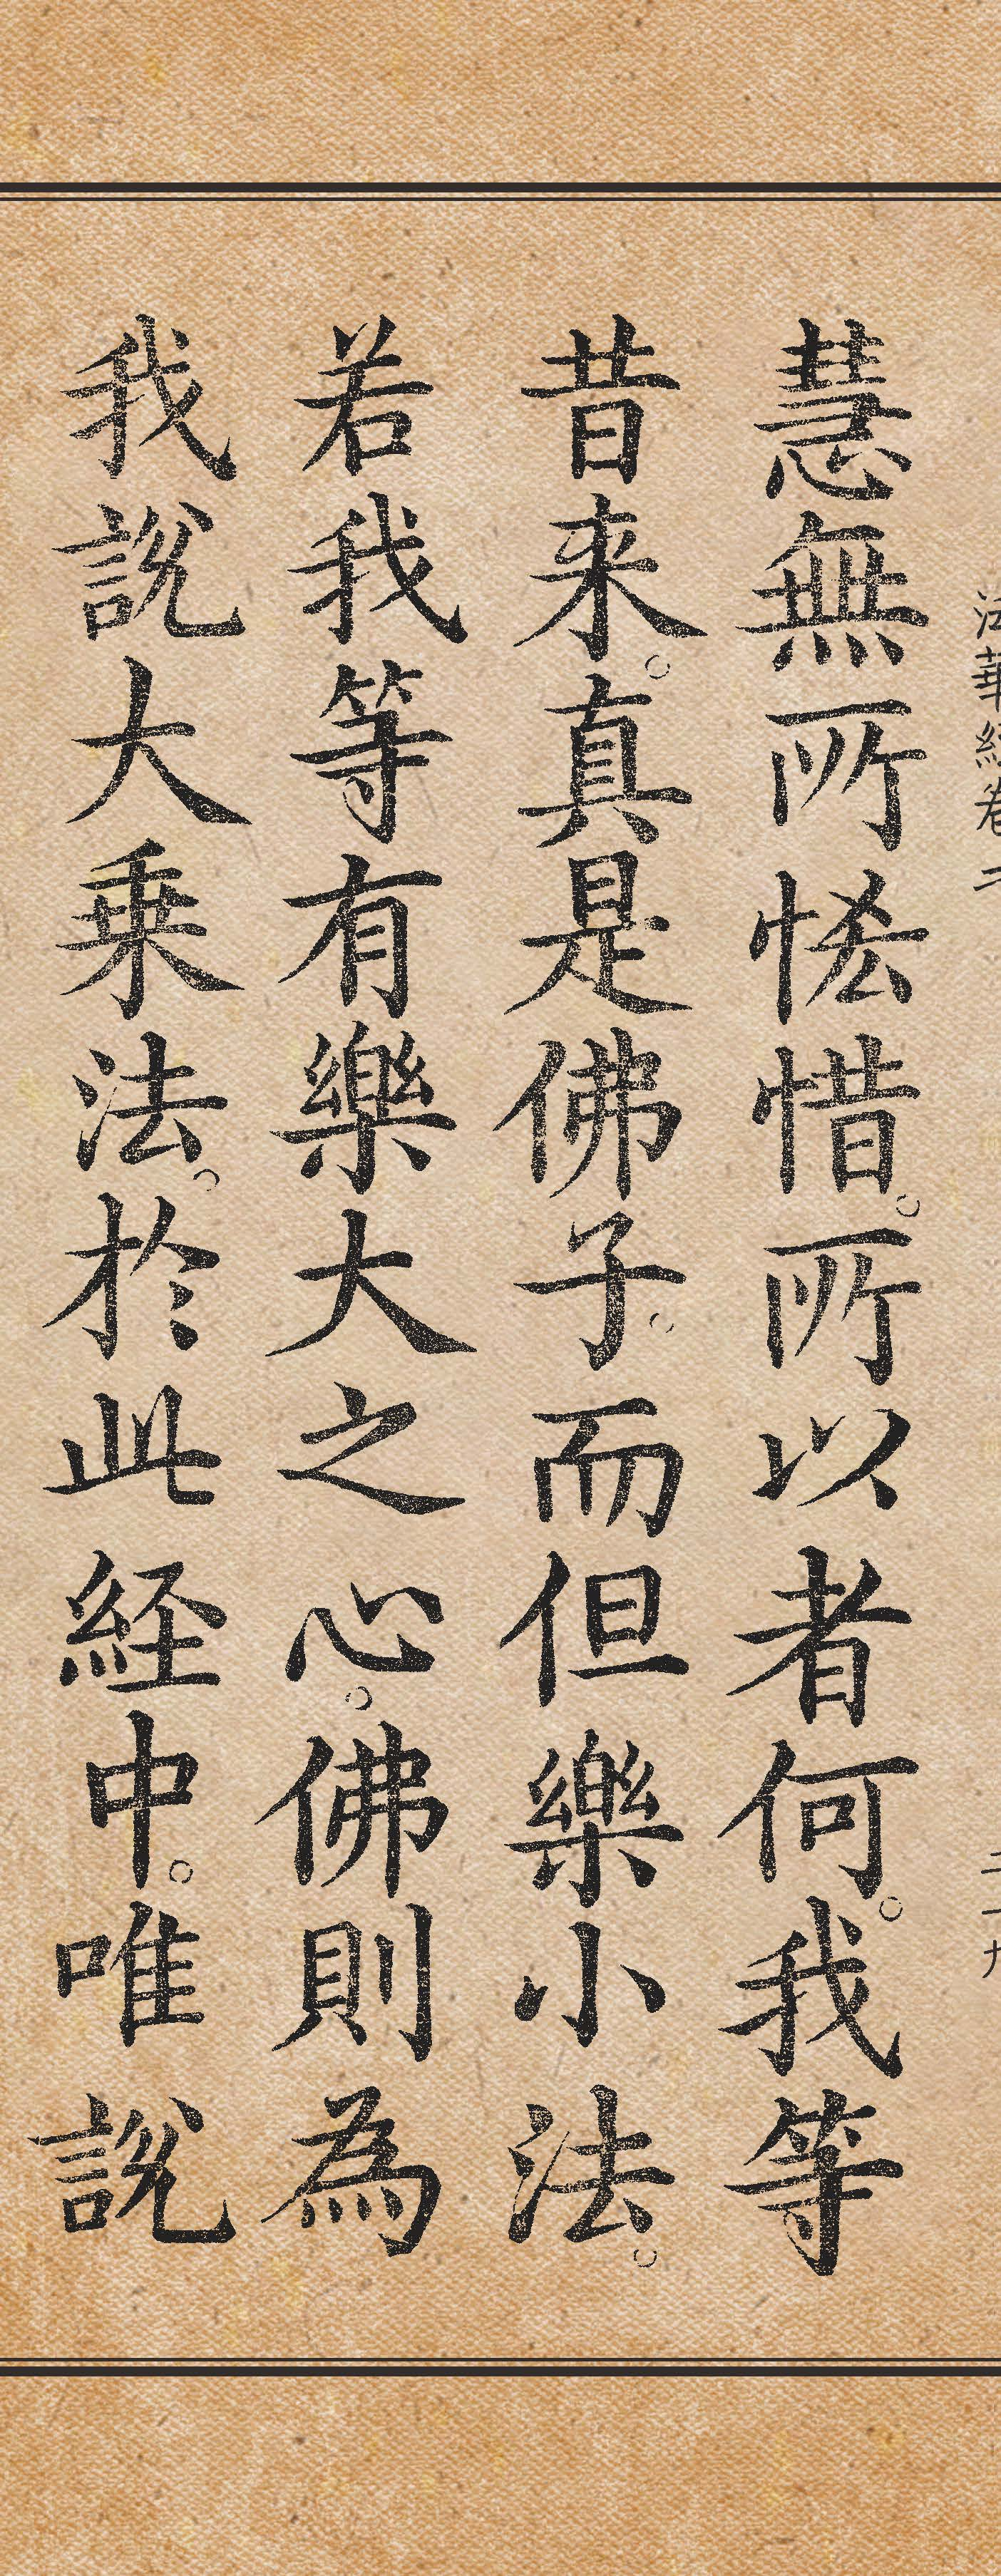 法華經卷二 二十九
慧無所悋惜。所以者何。我等
昔来。真是佛子。而但樂小法。
若我等有樂大之心。佛則為
我說大乗法。於此経中。唯說